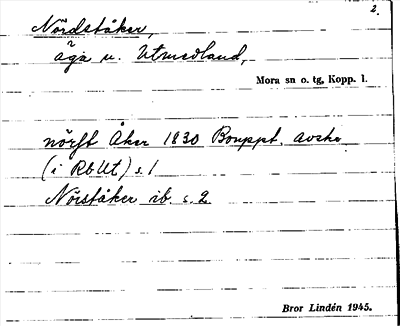 2.
Nördståker,
äga u. Utmedland,
Mora sn o. tg, Kopp. l.
nörft Åker 1830 Bouppt. avskr
(i RbUt) s. 1
Nörståker ib. s. 2
Bror Lindén 1945.